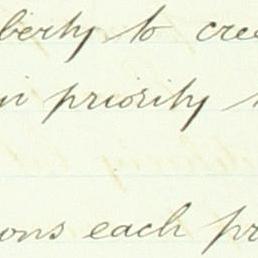 berty to cre
in priority
ons each pr